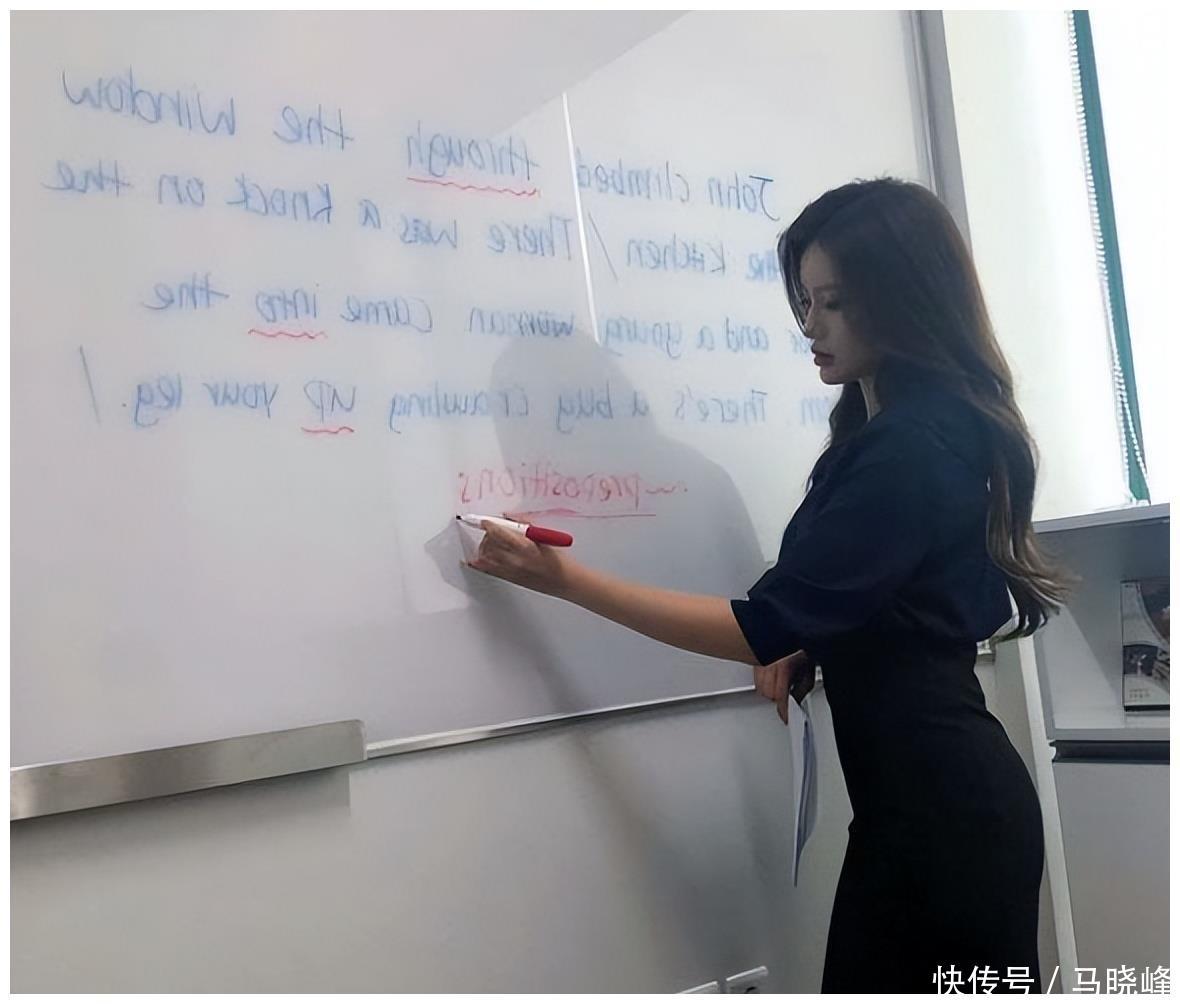 John climbed through the window
the kitchen / There was a knock on the
and a young woman came into the
There's a bug crawling up your leg. /
prepositions
快传号 / 马晓峰